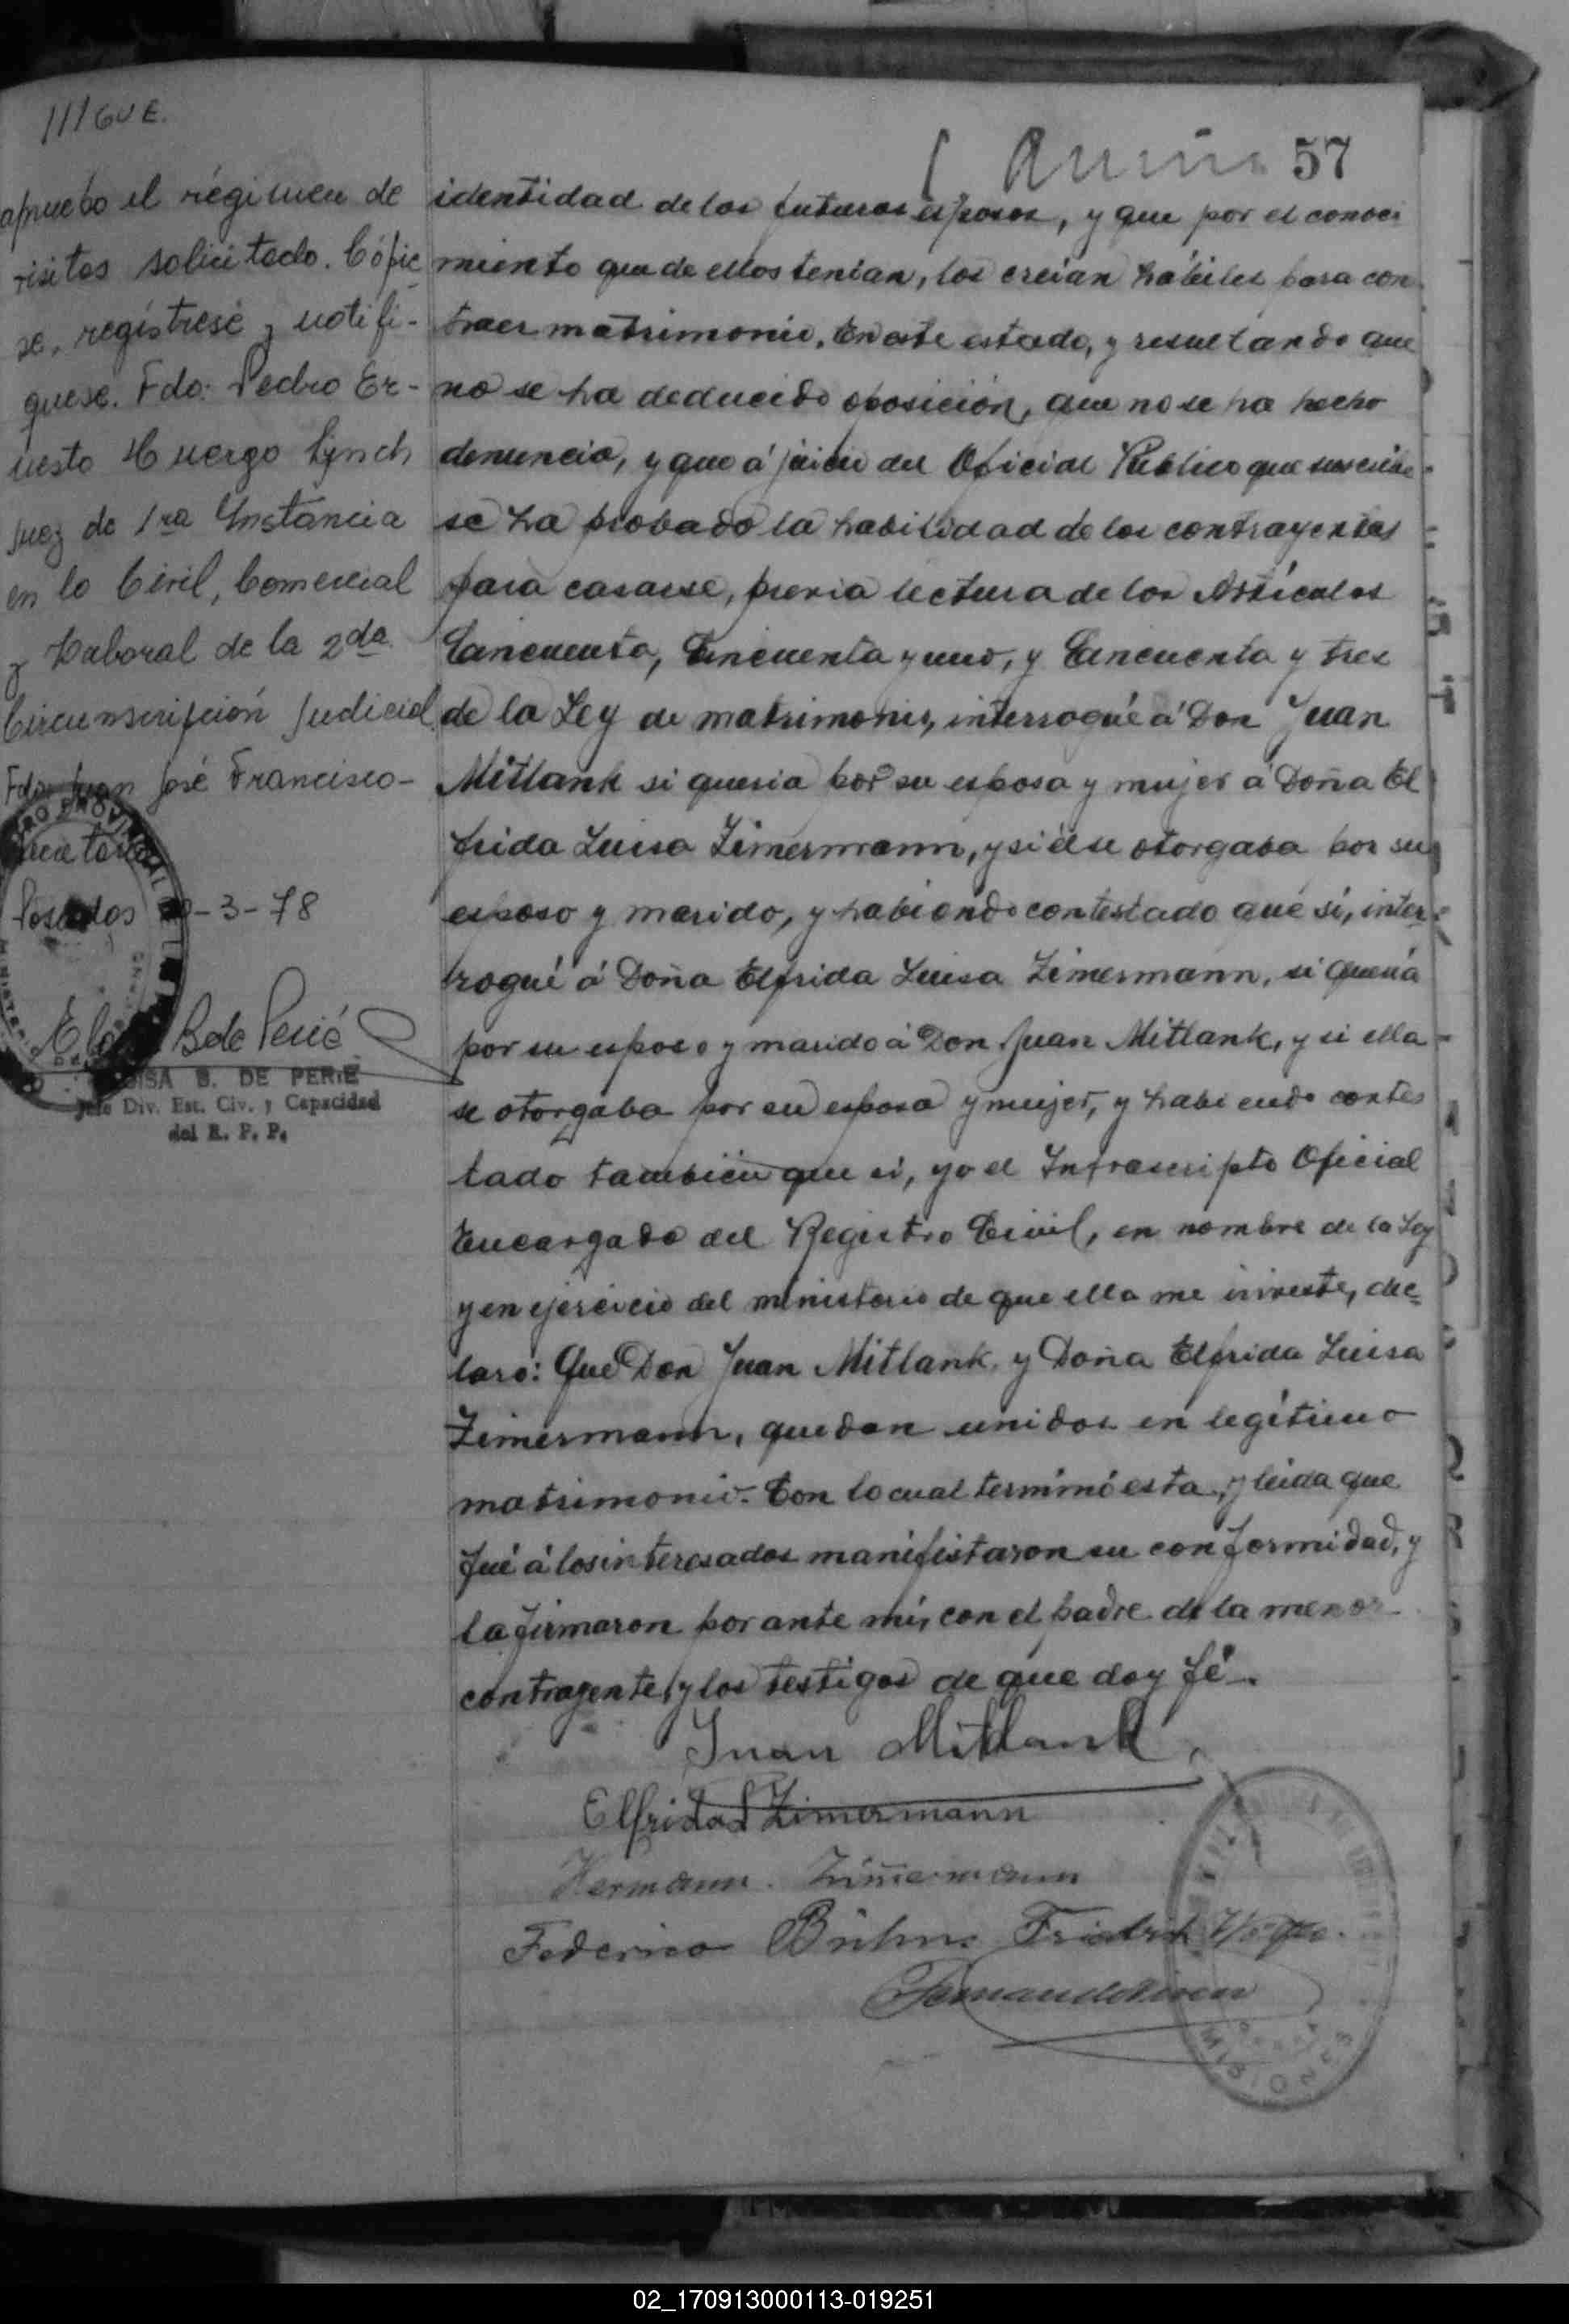 ///GUE.
apruebo el régimen de
visitas solicitado. Cópie
se, regístrese y notifí-
quese. Fdo: Pedro Er-
nesto Huergo Lynch
Juez de 1ra Instancia
en lo Civil, Comercial
y Laboral de la 2da
Circunscripción Judicial.
Fdo: Juan José Francisco-
Secretario
Posadas -3-78
B de Perié
B. DE PERIE
Jefe Div. Est. Civ. y Capacidad
del R. P. P.
57
identidad de los futuros esposos, y que por el conoci
miento que de ellos tenían, los creían hábiles para con
traer matrimonio. En este estado, y resultando que
no se ha deducido oposición, que no se ha hecho
denuncia, y que á juicio del Oficial Público que suscribe
se ha probado la habilidad de los contrayentes
para casarse, previa lectura de los Artículos
Cincuenta, Cincuenta y uno, y Cincuenta y tres
de la Ley de matrimonio, interrogué á Don Juan
Mitlank si queria por su esposa y mujer á Doña El
frida Luisa Zimermann, y si él se otorgaba por su
esposo y marido, y habiendo contestado que sí, inter
rogué á Doña Elfrida Luisa Zimermann, si quería
por su esposo y marido á Don Juan Mitlank, y si ella
se otorgaba por su esposa y mujer, y habiendo contes
tado también que sí, yo el Infrascripto Oficial
Encargado del Registro Civil, en nombre de la Ley
y en ejercicio del ministerio de que ella me inviste, dec
laro: Que Don Juan Mitlank y Doña Elfrida Luisa
Zimermann, quedan unidos en legítimo
matrimonio. Con lo cual terminó esta, y leida que
fué á los interesados manifestaron su conformidad, y
la firmaron por ante mí, con el padre de la menor
contrayente y los testigos de que doy fé.
Juan Mitlank
Elfrida L Zimermann
Hermann Zimmermann
Federico Friedrich
MISIONES
02_170913000113-019251